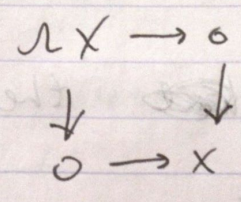 ΩX → 0
↓ ↓
0 → X